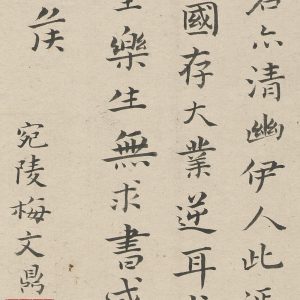 亦清幽伊人此
國存大業逆耳
樂生無求書
侯
宛陵梅文鼎